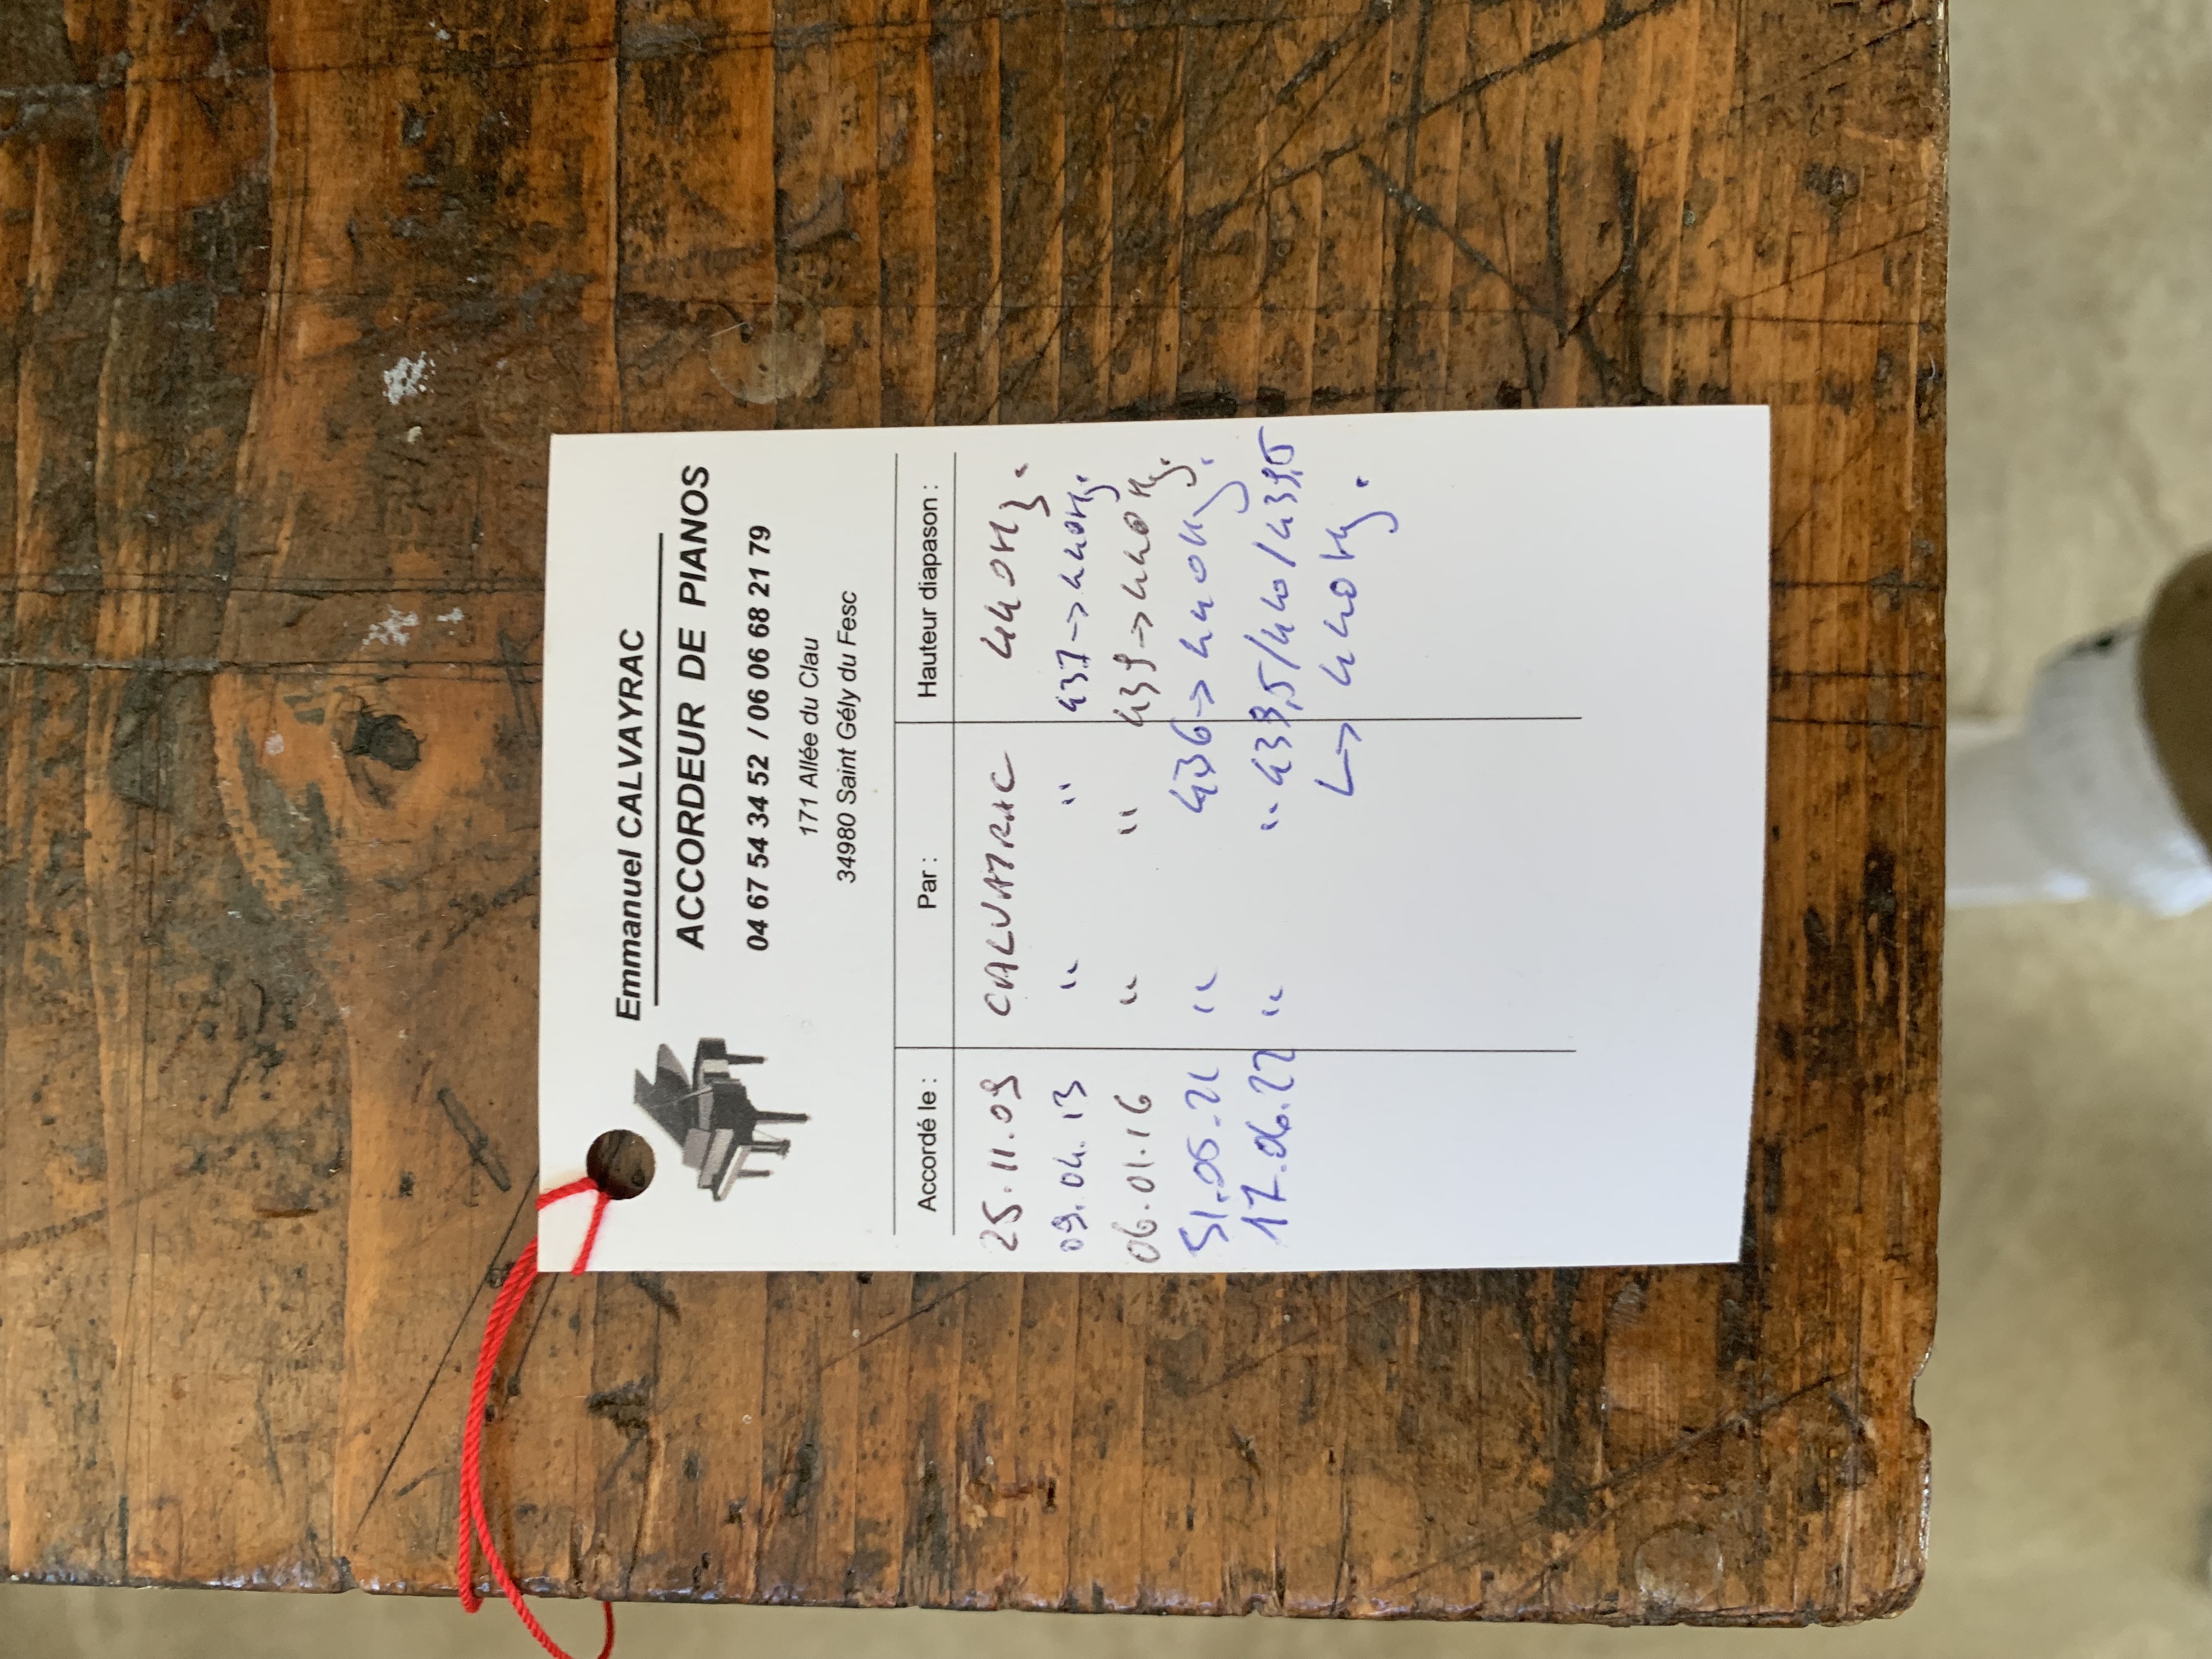 Emmanuel CALVAYRAC
ACCORDEUR DE PIANOS
04 67 54 34 52 / 06 06 68 21 79
171 Allée du Clau
34980 Saint Gély du Fesc
Accordé le : Par : Hauteur diapason :
25.11.09 CALVAYRAC 440Hz.
09.04.13 " " 437->440Hz.
06.01.16 " " 439->440Hz.
31.05.21 " 436->440Hz.
17.06.22 " " 439,5/440/439,5
↳ 440Hz.